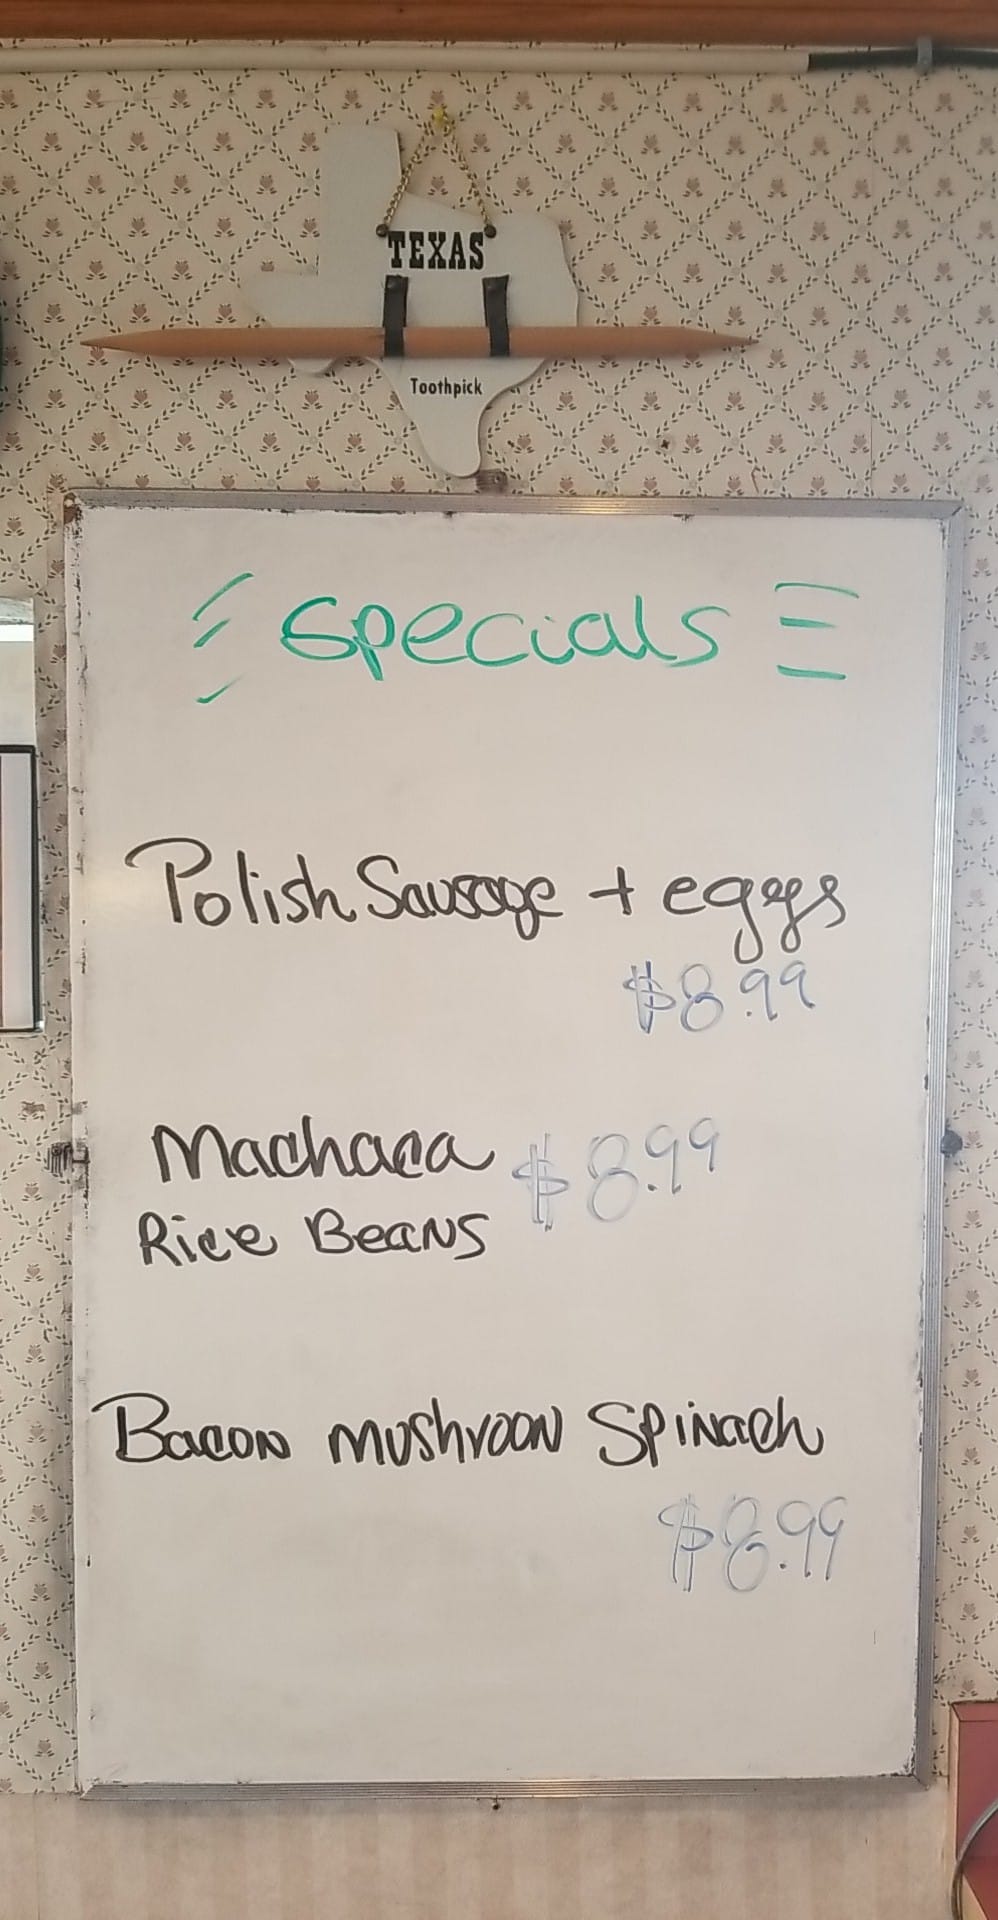 TEXAS
Toothpick
Specials
Polish Sausage + eggs
$8.99
Machaca $8.99
Rice Beans
Bacon mushroom Spinach
$8.99